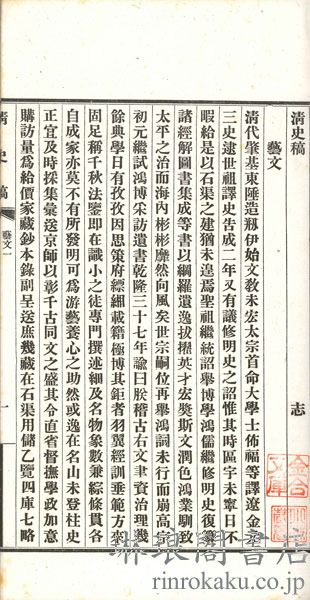 清史稿　志
藝文
清代肇基東陲造刱伊始文敎未宏太宗首命大學士佈福等譯遼金元
三史逮世祖譯史告成二年又有議修明史之詔惟其時區宇未寧日不
暇給是以石渠之建猶未遑焉聖祖繼統詔舉博學鴻儒繼修明史復纂
諸經解圖書集成等書以綱羅遺逸拔擢英才宏奬斯文潤色鴻業馴致
太平之治而海內彬彬靡然向風矣世宗嗣位再舉鴻詞未行而崩高宗
初元繼試鴻博采訪遺書乾隆三十七年諭曰朕稽古右文聿資治理幾
餘典學日有孜孜因思策府縹緗載籍極博其鉅者羽翼經訓垂範方來
固足稱千秋法鑒卽在識小之徒專門撰述細及名物象數兼綜條貫各
自成家亦莫不有所發明可爲游藝養心之助然或逸在名山未登柱史
正宜及時採集彙送京師以彰千古同文之盛其令直省督撫學政加意
購訪量爲給價家藏鈔本錄副呈送庶幾藏在石渠用儲乙覽四庫七略
清史稿
藝文一
一
琳琅閣書店
rinrokaku.co.jp